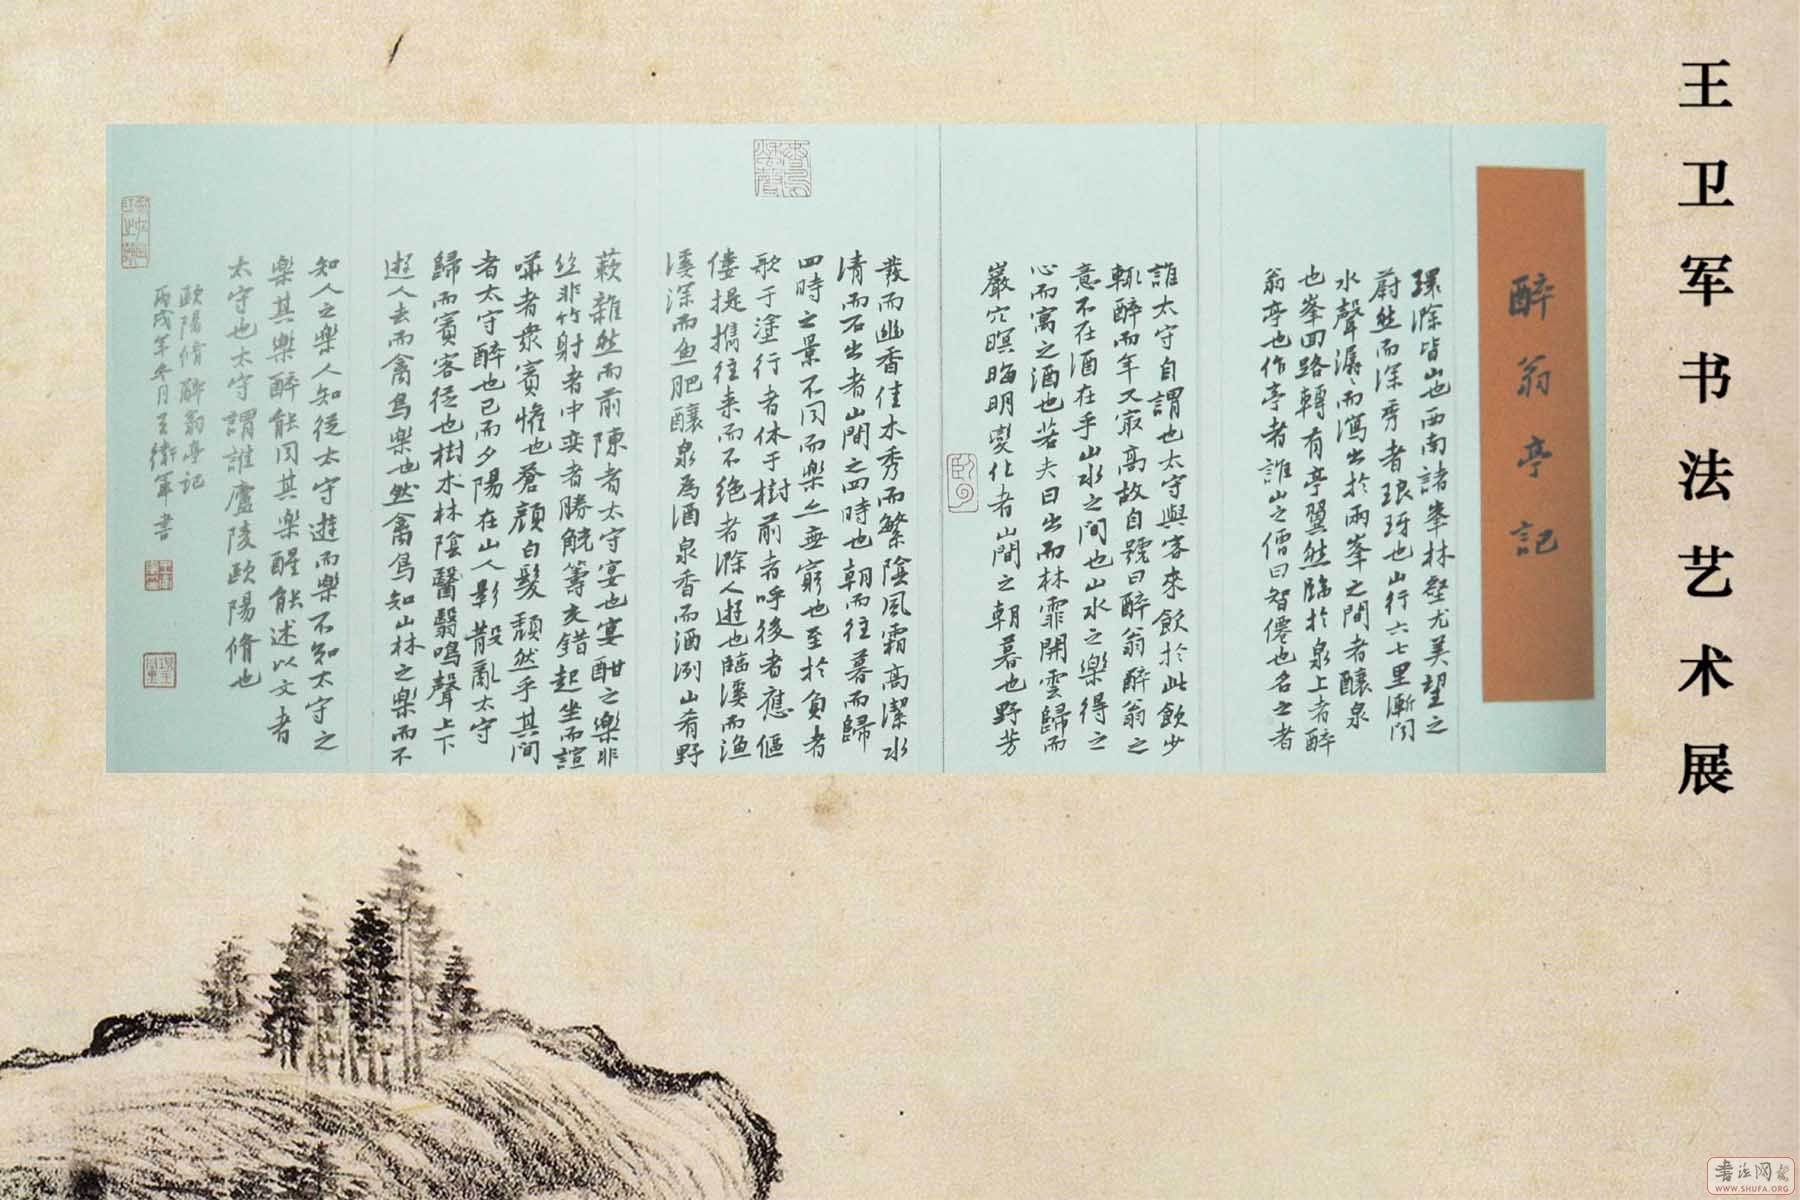 王卫军书法艺术展
醉翁亭記
環滁皆山也西南諸峯林壑尤美望之
蔚然而深秀者琅玡也山行六七里漸闻
水聲潺〻而瀉出於兩峯之間者釀泉
也峯回路轉有亭翼然臨於泉上者醉
翁亭也作亭者誰山之僧曰智僊也名之者
誰太守自謂也太守與客來飲於此飲少
輒醉而年又最高故自號曰醉翁醉翁之
意不在酒在乎山水之间也山水之樂得之
心而寓之酒也若夫日出而林霏開雲歸而
巖穴暝晦明變化者山間之朝暮也野芳
發而幽香佳木秀而繁陰風霜高潔水
清而石出者山間之四時也朝而往暮而歸
四時之景不同而樂亦無窮也至於負者
歌于塗行者休于樹前者呼後者應傴
僂提攜往來而不绝者滁人遊也臨溪而渔
溪深而鱼肥釀泉為酒泉香而酒洌山肴野
蔌雜然而前陳者太守宴也宴酣之樂非
丝非竹射者中奕者勝觥籌交錯起坐而諠
嘩者衆賓懽也蒼顔白髮頹然乎其间
者太守醉也已而夕陽在山人影散亂太守
歸而賓客從也樹木林陰翳翳鳴聲上下
遊人去而禽鳥樂也然禽鳥知山林之樂而不
知人之樂人知從太守遊而樂不知太守之
樂其樂醉能同其樂醒能述以文者
太守也太守謂誰廬陵歐陽脩也
歐陽脩醉翁亭记
丙戌年冬月王衛軍書
书法网
WWW.SHUFA.ORG